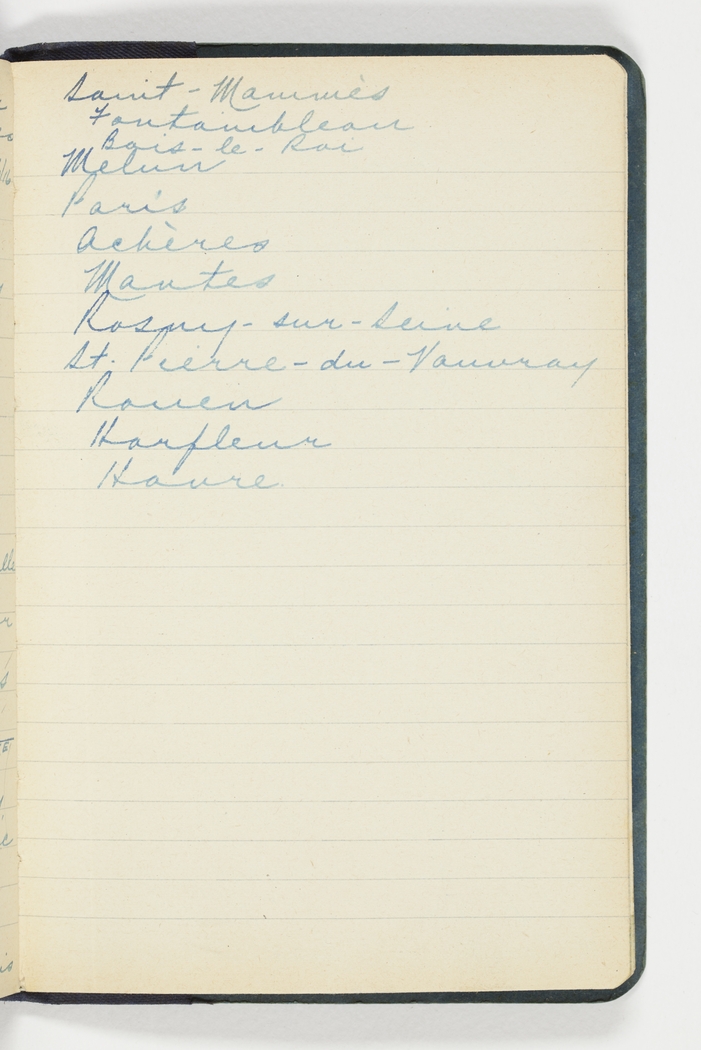 Saint-Mammès
Fontambleau
Bois-le-Roi
Melun
Paris
Achères
Mantes
Rosny-sur-Seine
St. Pierre-du-Vauvray
Rouen
Harfleur
Havre.